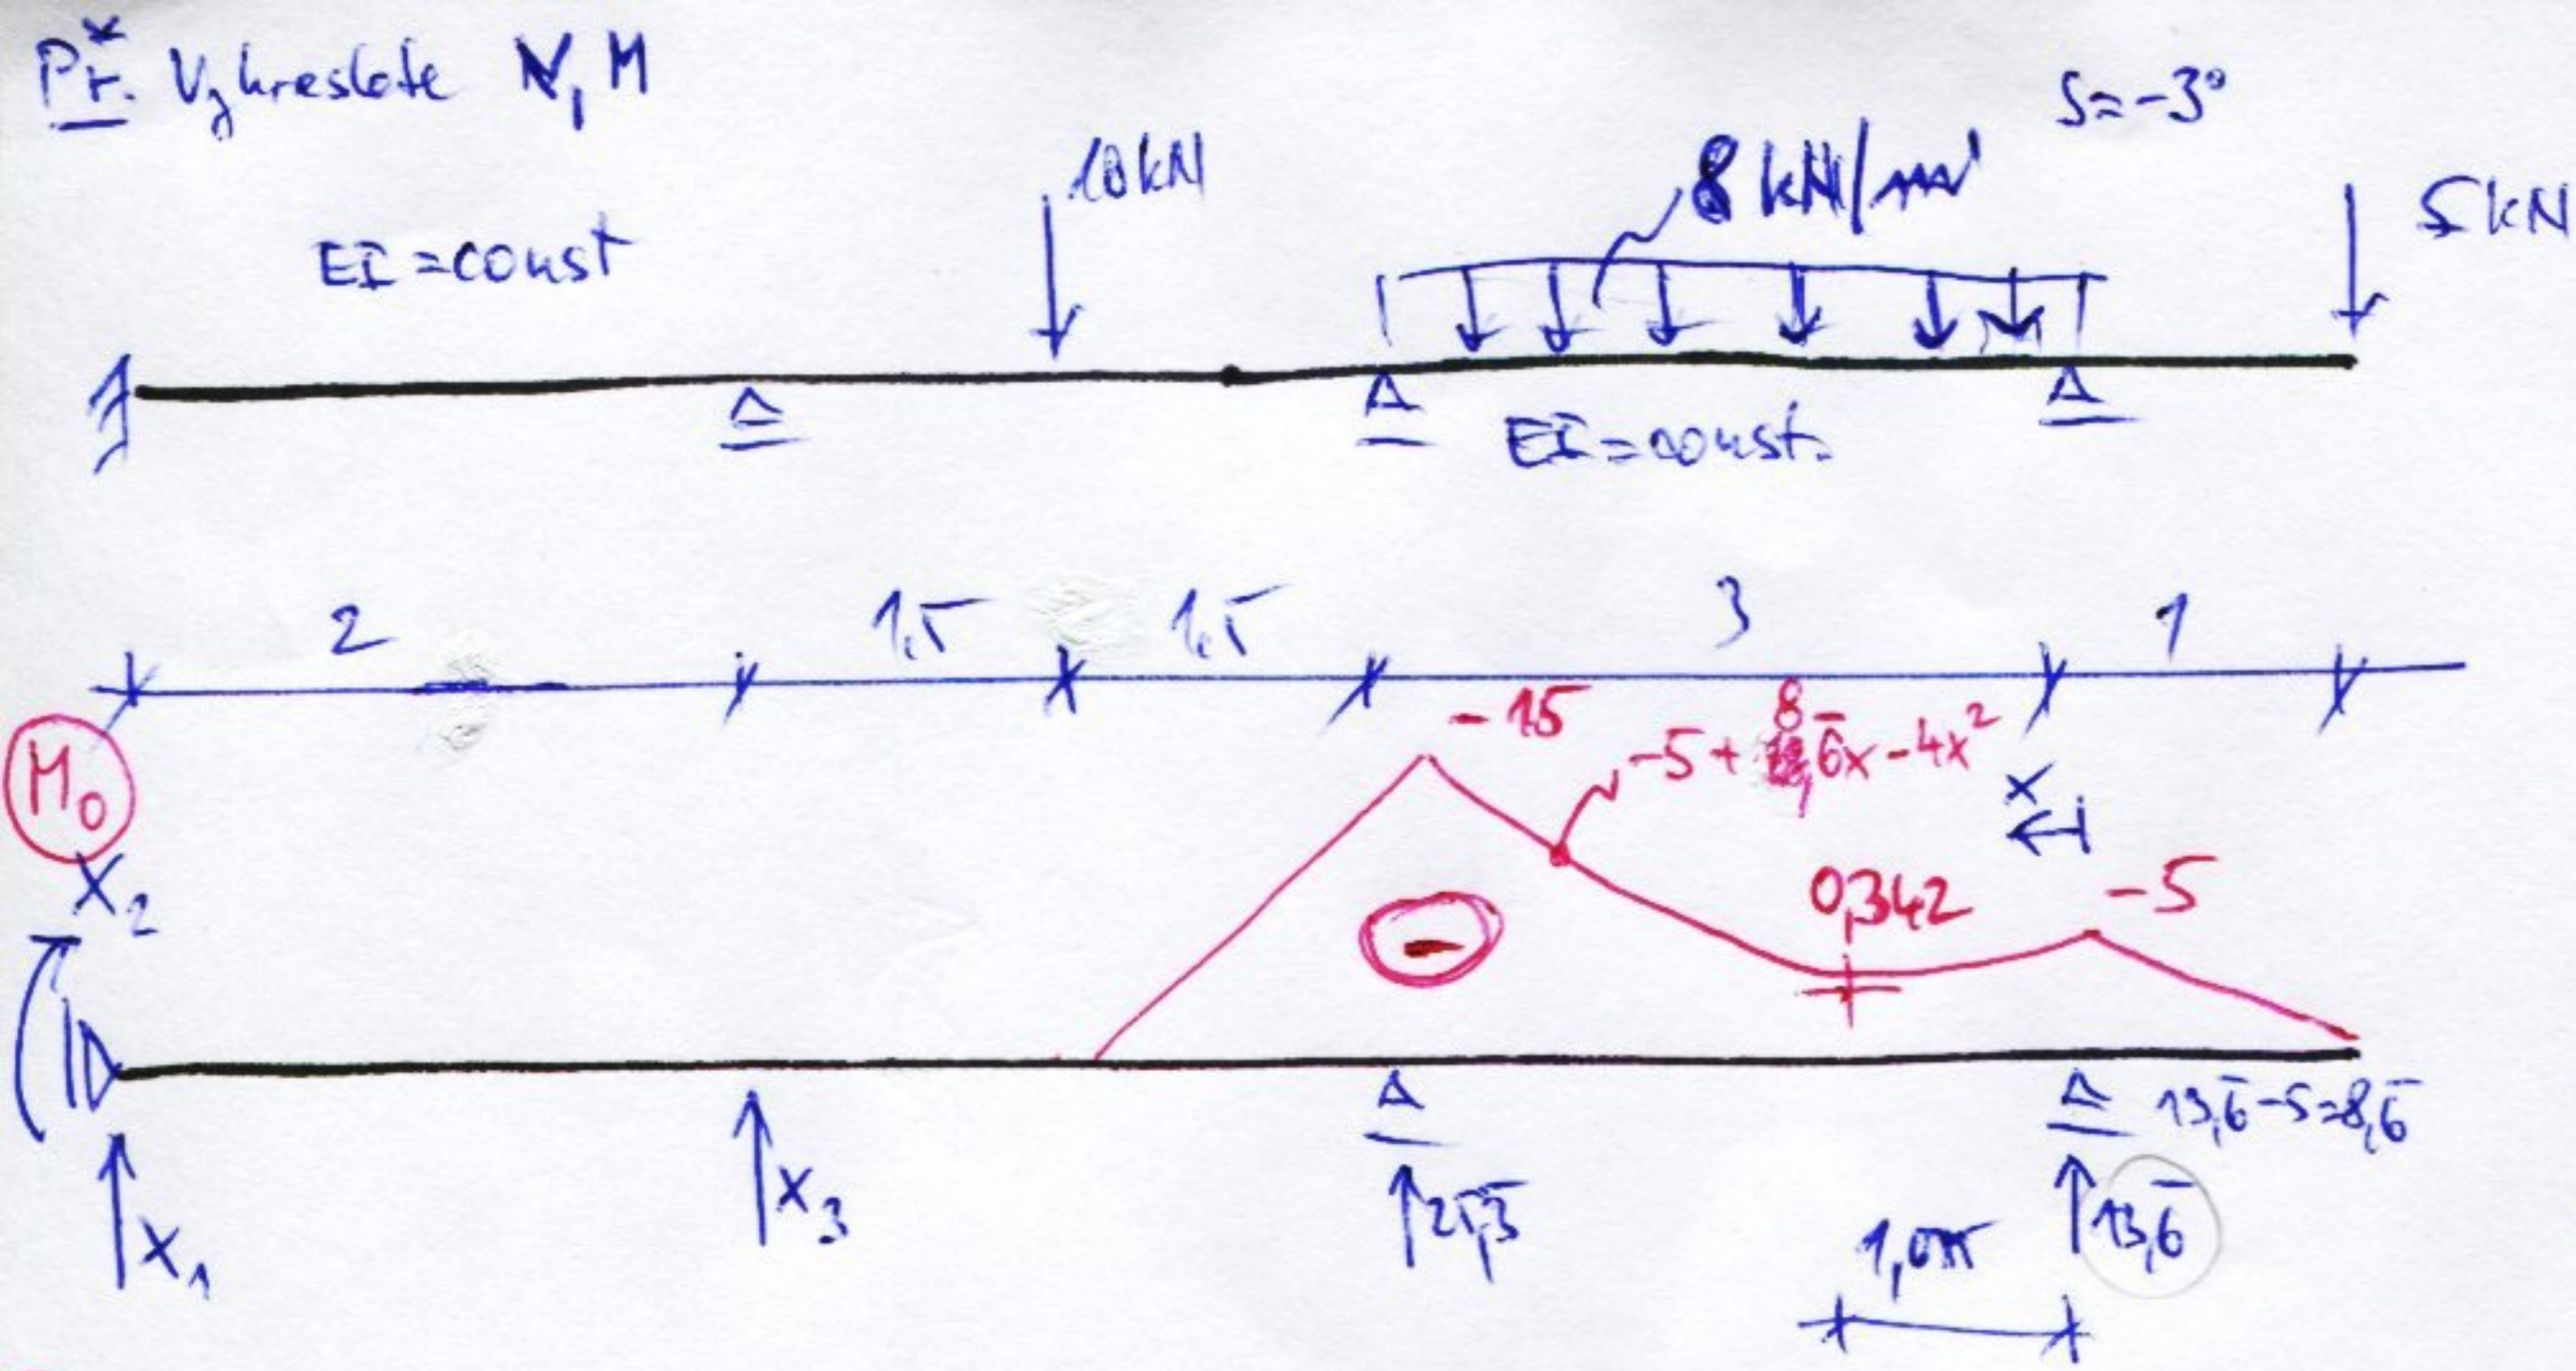 Př. Vykreslete N, M
S=-3°
10kN
8 kN/m'
5kN
EI=const
EI=const.
2
1,5
1,5
3
1
M0
-15
-5+8,6̅x-4x²
x
0,342
-5
X2
X1
X3
25,3̅
13,6̅
13,6̅-5=8,6̅